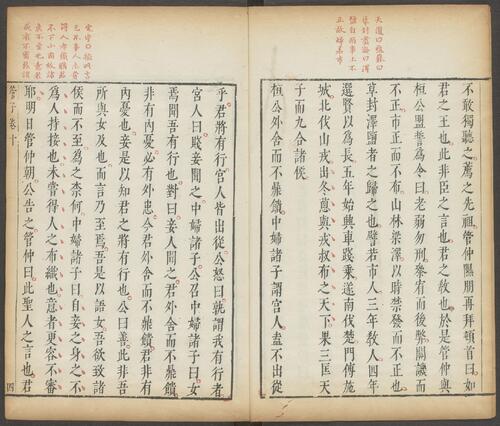 不敢獨聽之薦之先祖管仲隰朋再拜頓首曰如
君之王也此非臣之言也君之教也於是管仲與
桓公盟誓為令曰老弱勿刑參宥而後弊關譏而
不正市正而不布山林梁澤以時禁發而不正也
草封澤鹽者之歸之也譬若市人三年教人四年
選賢以為長五年始興車踐乘遂南伐楚門傅施
城北伐山戎出冬蔥與戎叔布之天下果三匡天
子而九合諸侯
桓公外舍而不鼎饋中婦諸子謂宮人盍不出從
乎君將有行宮人皆出從公怒曰孰謂我有行者
宮人曰賤妾聞之中婦諸子公召中婦諸子曰女
焉聞吾有行也對曰妾人聞之君外舍而不鼎饋
非有內憂必有外患今君外舍而不鼎饋君非有
內憂也妾是以知君之將有行也公曰善此非吾
所與女及也而言乃至焉吾是以語女吾欲致諸
侯而不至為之柰何中婦諸子曰自妾之身之不
為人持接也未嘗得人之布織也意者更容不審
耶明日管仲朝公告之管仲曰此聖人之言也君
管子卷十
四